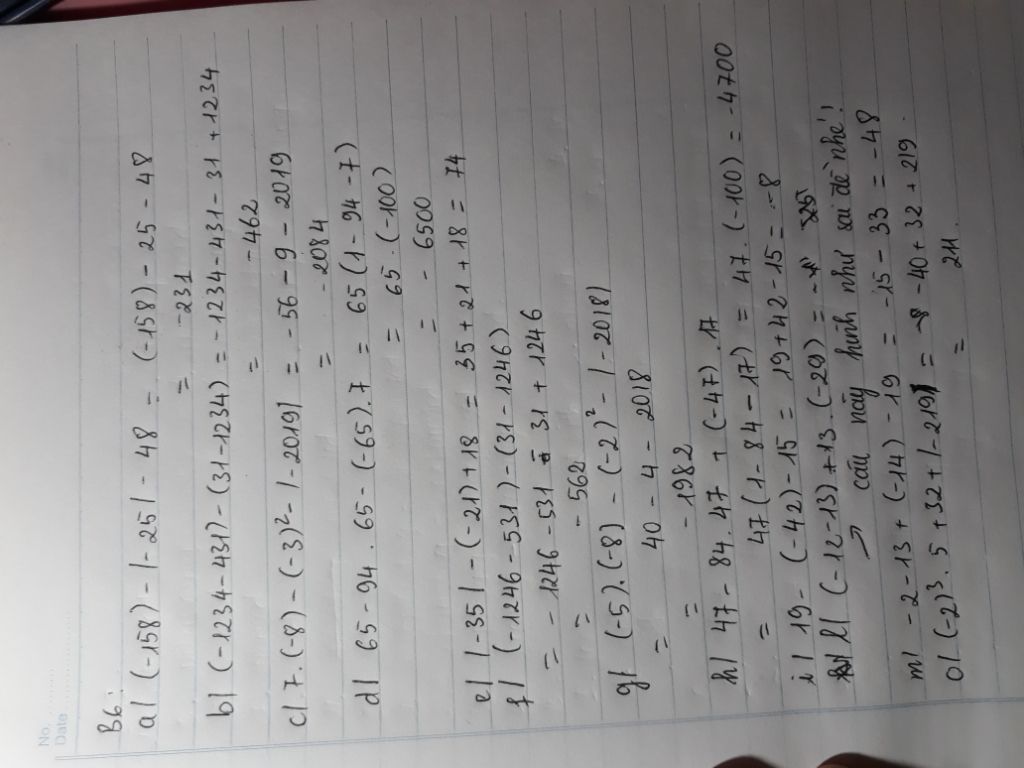 No.
Date
B6:
a/ (-158) - |-25| - 48 = (-158) - 25 - 48
= -231
b/ (-1234-431) - (31-1234) = -1234-431-31+1234
= -462
c/ 7.(-8) - (-3)² - |-2019| = -56-9-2019
= -2084
d/ 65-94.65-(-65).7 = 65(1-94-7)
= 65.(-100)
= -6500
e/ |-35| - (-21)+18 = 35+21+18 = 74
f/ (-1246-531)-(31-1246)
= -1246-531-31+1246
= -562
g/ (-5).(-8) - (-2)² - |-2018|
= 40-4-2018
= -1982
h/ 47-84.47+(-47).17
= 47(1-84-17) = 47.(-100) = -4700
i/ 19-(-42)-15 = 19+42-15 = -8
l/ (-12-13)+13.(-29) =
→ câu này hình như sai đề nhé!
m/ -2-13+(-14)-19 = -15-33 = -48
o/ (-2)³.5+32+|-219| = -40+32+219.
= 211.